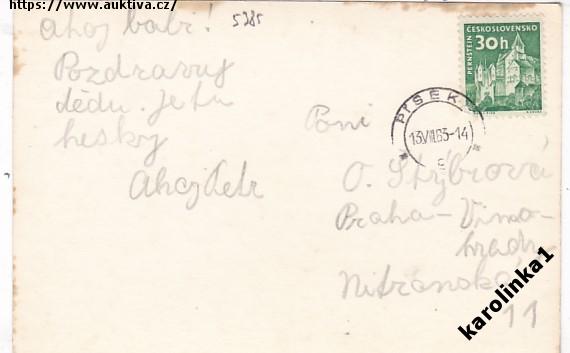 https://www.auktiva.cz/
ahoj babi!
5285
Pozdravuj
dědu. Je tu
hezky
Ahoj Petr
Paní
O. Stýbrová
Praha - Vino-
hrady
Nitranská
11
PERNŠTEJN
ČESKOSLOVENSKO
30h
PÍSEK
13.VII.63-14
karolinka1